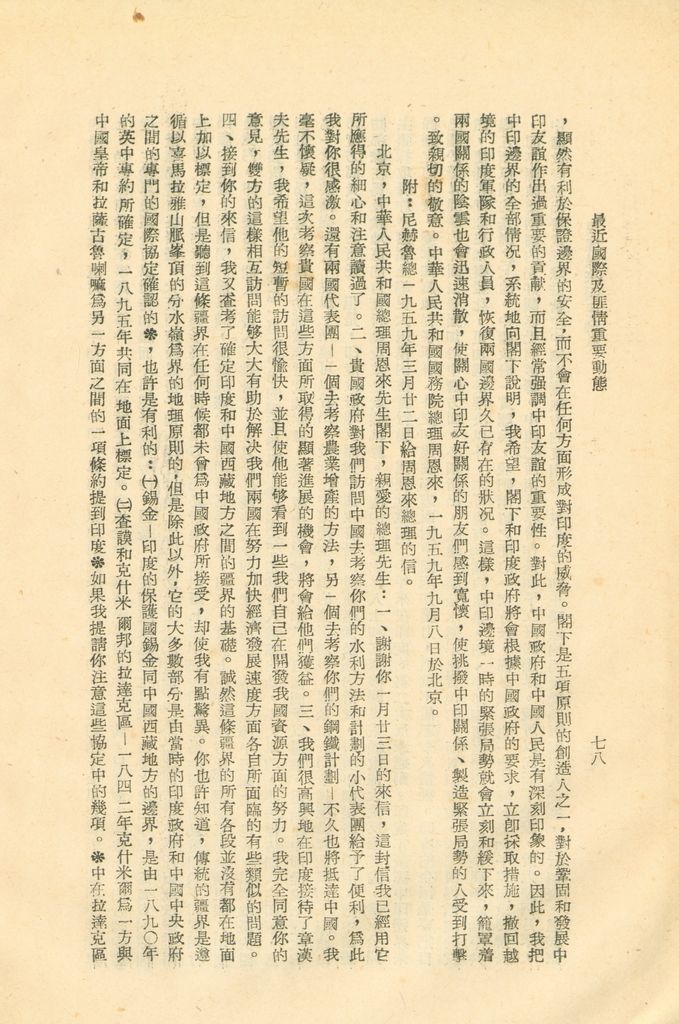 最近國際及匪情重要動態
七八
，顯然有利於保證邊界的安全，而不會在任何方面形成對印度的威脅。閣下是五項原則的創造人之一，對於鞏固和發展中
印友誼作出過重要的貢獻，而且經常强調中印友誼的重要性。對此，中國政府和中國人民是有深刻印象的。因此，我把
中印邊界的全部情況，系統地向閣下說明，我希望，閣下和印度政府將會根據中國政府的要求，立卽採取措施，撤回越
境的印度軍隊和行政人員，恢復兩國邊界久已存在的狀況。這樣，中印邊境一時的緊張局勢就會立刻和緩下來，籠罩着
兩國關係的陰雲也會迅速消散，使關心中印友好關係的朋友們感到寬懷，使挑撥中印關係、製造緊張局勢的人受到打擊
。致親切的敬意。中華人民共和國國務院總理周恩來，一九五九年九月八日於北京。
附：尼赫魯總一九五九年三月廿二日給周恩來總理的信。
北京，中華人民共和國總理周恩來先生閣下，親愛的總理先生：一、謝謝你一月廿三日的來信，這封信我已經用它
所應得的細心和注意讀過了。二、貴國政府對我們訪問中國去考察你們的水利方法和計劃的小代表團給予了便利，爲此
我對你很感激。還有兩國代表團—一個去考察農業增產的方法，另一個去考察你們的鋼鐵計劃—不久也將抵達中國。我
毫不懷疑，這次考察貴國在這些方面所取得的顯著進展的機會，將會給他們獲益。三、我們很高興地在印度接待了章漢
夫先生，我希望他的短暫的訪問很愉快，並且使他能够看到一些我們自己在開發我國資源方面的努力。我完全同意你的
意見，雙方的這樣相互訪問能够大大有助於解決我們兩國在努力加快經濟發展速度方面各自所面臨的有些類似的問題。
四、接到你的來信，我又查考了確定印度和中國西藏地方之間的疆界的基礎。誠然這條疆界的所有各段並沒有都在地面
上加以標定，但是聽到這條疆界在任何時候都未會爲中國政府所接受，却使我有點驚異。你也許知道，傳統的疆界是遵
循以喜馬拉雅山脈峯頂的分水嶺爲界的地理原則的，但是除此以外，它的大多數部分是由當時的印度政府和中國中央政府
之間的專門的國際協定確認的＊，也許是有利的：㈠錫金—印度的保護國錫金同中國西藏地方的邊界，是由一八九〇年
的英中專約所確定，一八九五年共同在地面上標定。㈡查謨和克什米爾邦的拉達克區—一八四二年克什米爾爲一方與
中國皇帝和拉薩古魯喇嘛爲另一方面之間的一項條約提到印度＊如果我提請你注意這些協定中的幾項。＊中在拉達克區